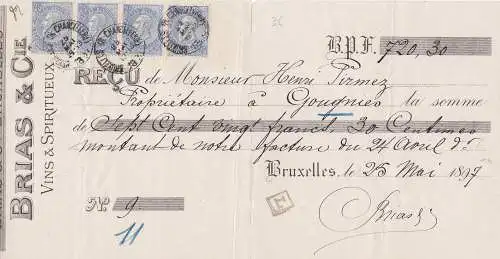 B.P.F. 720,30
REÇU de Monsieur Henri Pirmez
Propriétaire à Gougnies la somme
de Sept Cent vingt francs, 30 Centimes
montant de notre facture du 24 Avril dr.
Bruxelles, le 25 Mai 1897
Nº 9
11
Brias
BRIAS & CIE
VINS & SPIRITUEUX